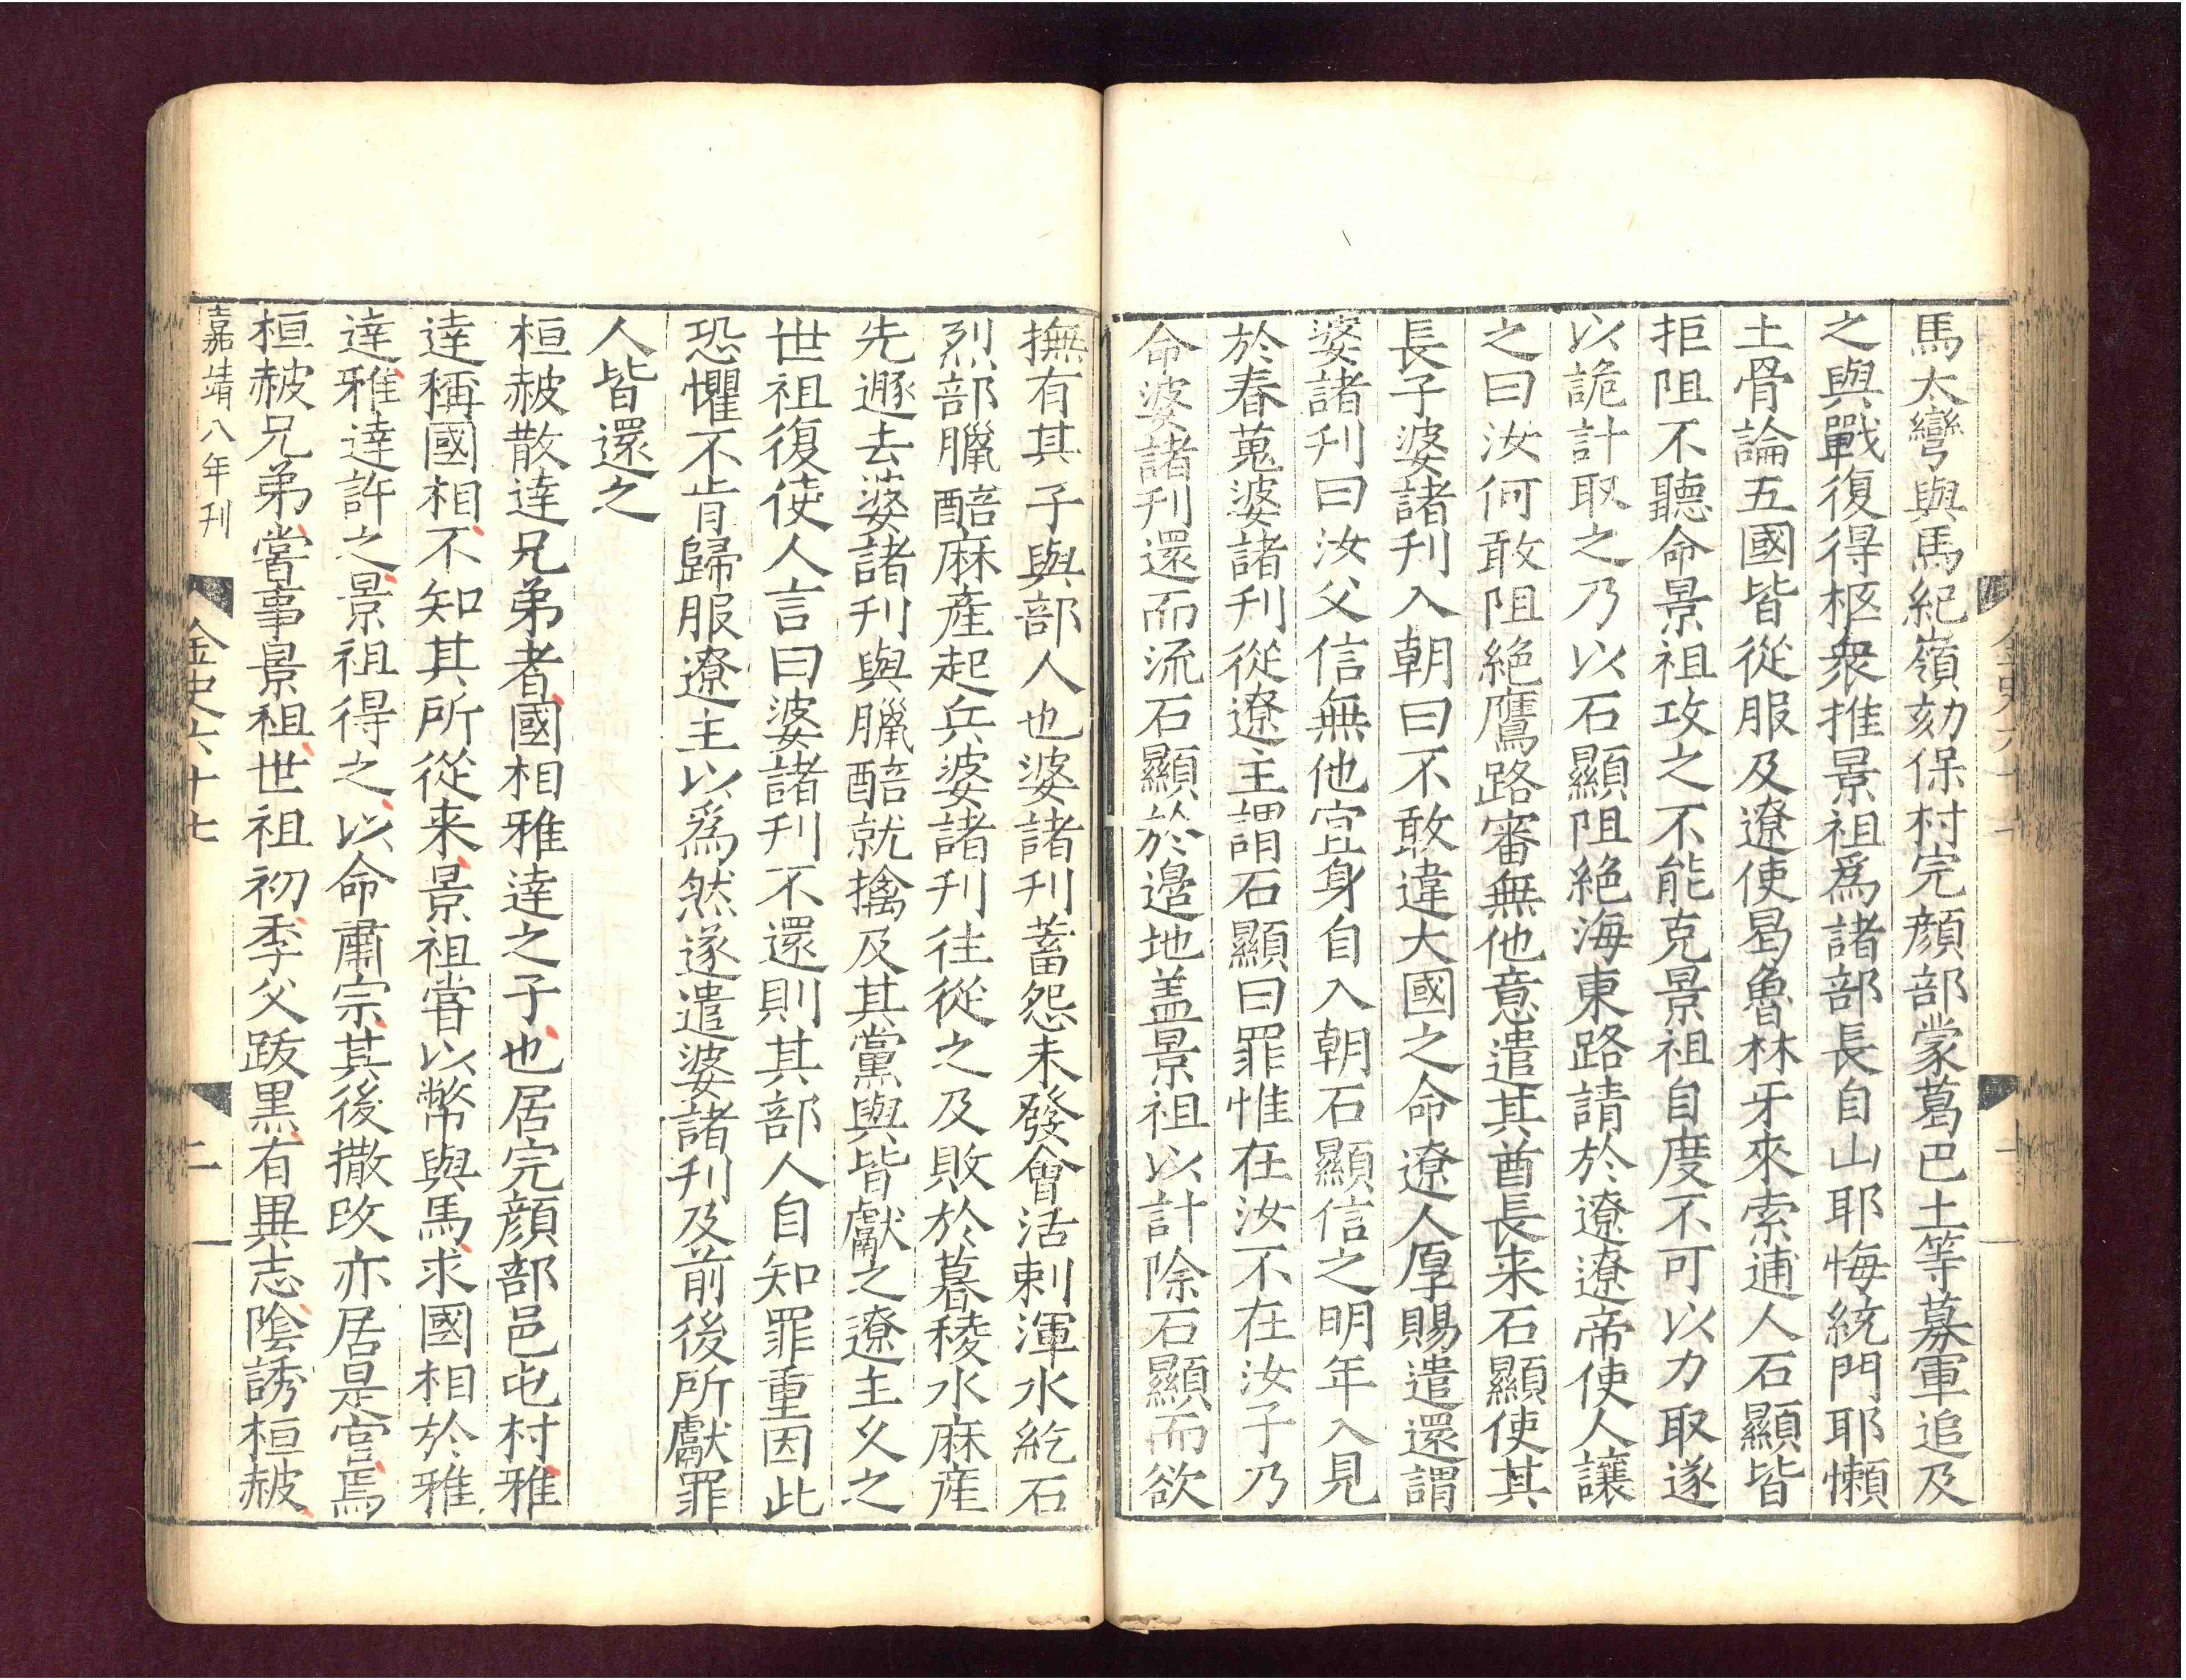 馬太彎與馬紀嶺劾保村完顔部蒙葛巴土等募軍追及
之與戰復得柩衆推景祖爲諸部長自山耶悔統門耶懶
土骨論五國皆從服及遼使曷魯林牙來索逋人石顯皆
拒阻不聽命景祖攻之不能克景祖自度不可以力取遂
以詭計取之乃以石顯阻絶海東路請於遼遼帝使人讓
之曰汝何敢阻絶鷹路審無他意遣其酋長来石顯使其
長子婆諸刋入朝曰不敢違大國之命遼人厚賜遣還謂
婆諸刋曰汝父信無他宜身自入朝石顯信之明年入見
於春蒐婆諸刋從遼主謂石顯曰罪惟在汝不在汝子乃
命婆諸刋還而流石顯於邊地盖景祖以計除石顯而欲
撫有其子與部人也婆諸刋蓄怨未發會活剌渾水紇石
烈部臘醅麻産起兵婆諸刋往從之及敗於暮稜水麻産
先遯去婆諸刋與臘醅就擒及其黨與皆獻之遼主乆之
世祖復使人言曰婆諸刋不還則其部人自知罪重因此
恐懼不肯歸服遼主以爲然遂遣婆諸刋及前後所獻罪
人皆還之
桓赧散達兄弟者國相雅達之子也居完顔部邑屯村雅
達稱國相不知其所從来景祖甞以幣與馬求國相於雅
達雅達許之景祖得之以命肅宗其後撒改亦居是官焉
桓赧兄弟甞事景祖世祖初季父跋黒有異志陰誘桓赧
嘉靖八年刋
金史六十七
二